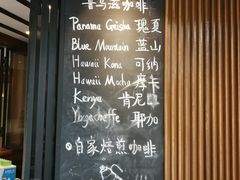 喜乌滋咖啡
Panama Geisha 瑰夏
Blue Mountain 蓝山
Hawaii Kona 可纳
Hawaii Mocha 摩卡
Kenya 肯尼亚
Yirgacheffe 耶加
自家焙煎咖啡